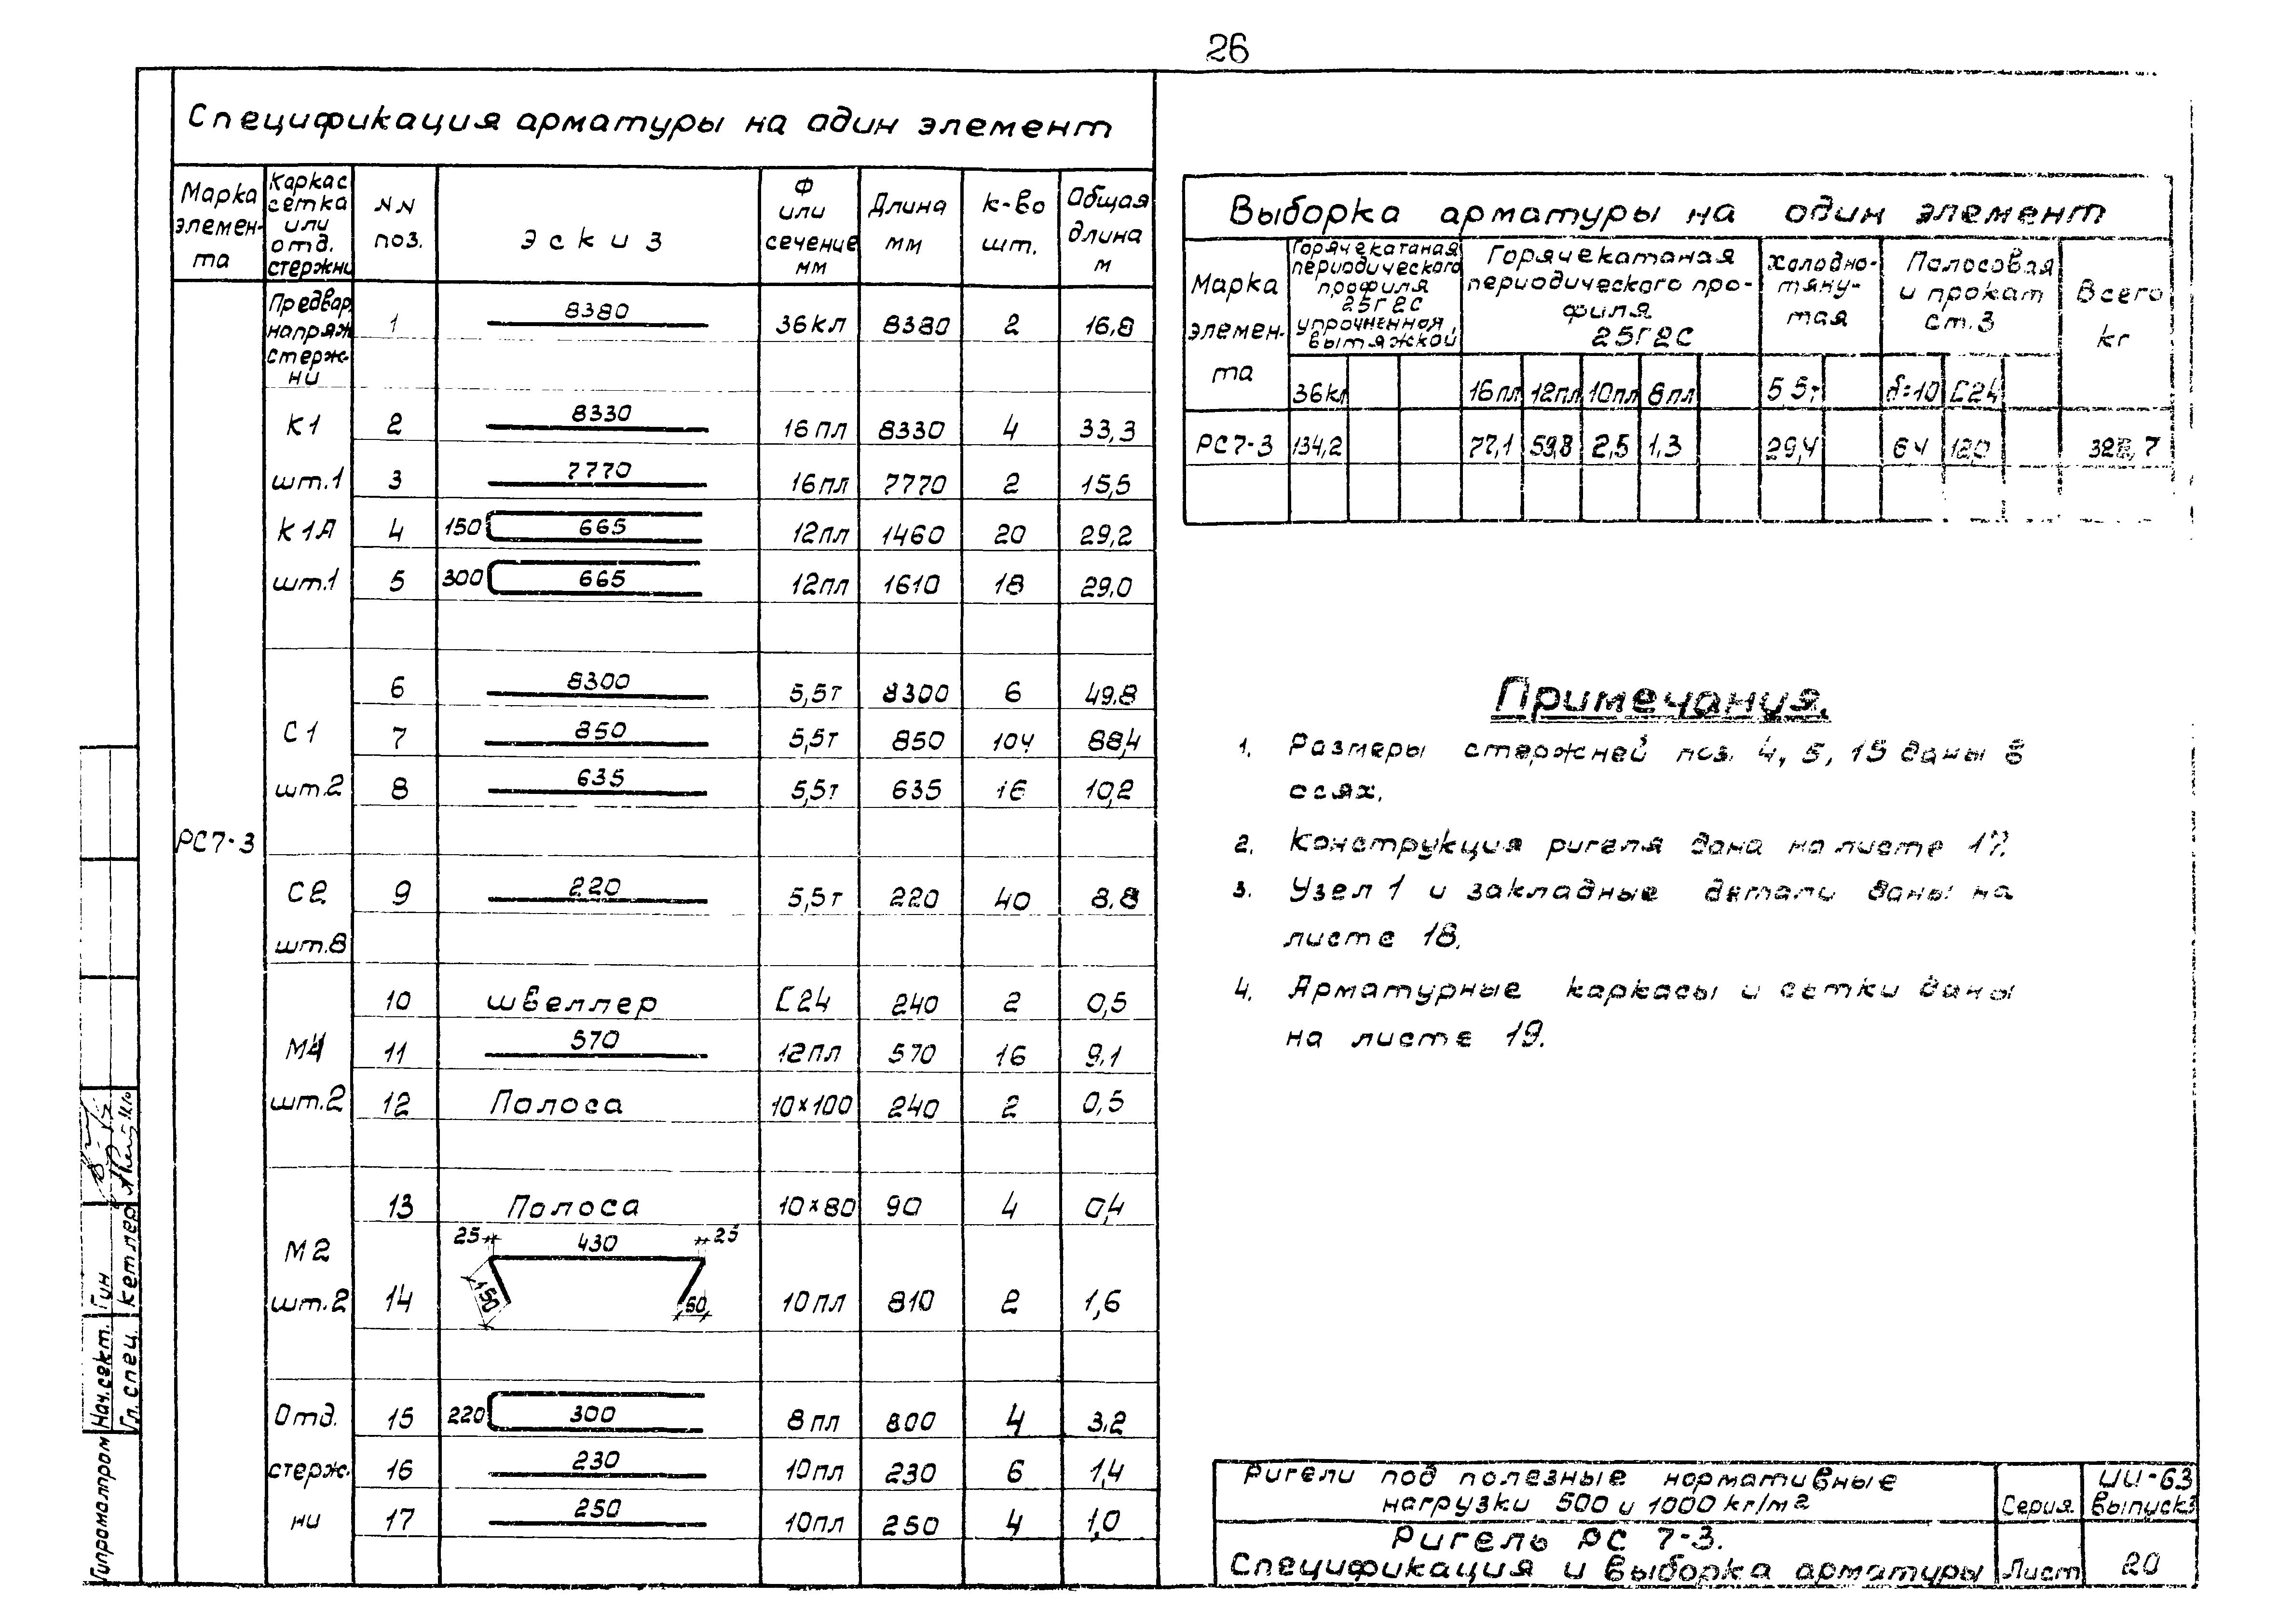 26
Спецификация арматуры на один элемент
Марка элемен-та | Каркас сетка или отд. стержни | NN поз. | Эскиз | Ф или сечение мм | Длина мм | к-во шт. | Общая длина м
РС7-3
Предвар. напряж стерж-ни | 1 | 8380 | 36кл | 8380 | 2 | 16,8
К1 | 2 | 8330 | 16пл | 8330 | 4 | 33,3
шт.1 | 3 | 7770 | 16пл | 7770 | 2 | 15,5
К1А | 4 | 150 665 | 12пл | 1460 | 20 | 29,2
шт.1 | 5 | 300 665 | 12пл | 1610 | 18 | 29,0
6 | 8300 | 5,5т | 8300 | 6 | 49.8
С1 | 7 | 850 | 5,5т | 850 | 104 | 88,4
шт.2 | 8 | 635 | 5,5т | 635 | 16 | 10,2
С2 | 9 | 220 | 5,5т | 220 | 40 | 8.8
шт.8
10 | швеллер | [24 | 240 | 2 | 0,5
М4 | 11 | 570 | 12пл | 570 | 16 | 9.1
шт.2 | 12 | Полоса | 10×100 | 240 | 2 | 0,5
13 | Полоса | 10×80 | 90 | 4 | 0,4
М2
шт.2 | 14 | 25 430 25 150 60 | 10пл | 810 | 2 | 1,6
Отд. | 15 | 220 300 | 8пл | 800 | 4 | 3.2
стерж- | 16 | 230 | 10пл | 230 | 6 | 1,4
ни | 17 | 250 | 10пл | 250 | 4 | 1,0
Выборка арматуры на один элемент
Марка элемен-та | Горячекатаная периодического профиля 25Г2С упрочненная вытяжкой | Горячекатаная периодического про-филя 25Г2С | Холодно-тяну-тая | Полосовая и прокат ст.3 | Всего кг
36кл | 16пл | 12пл | 10пл | 8пл | 5 5т | δ=10 | [24
РС7-3 | 134,2 | 77,1 | 59,8 | 2,5 | 1,3 | 29,4 | 6 4 | 12,0 | 7
Примечания.
1. Размеры стержней поз. 4, 5, 15 даны в
осях.
2. Конструкция ригеля дана на листе 17.
3. Узел 1 и закладные детали даны на
листе 18.
4. Арматурные каркасы и сетки даны
на листе 19.
Ригели под полезные нормативные
нагрузки 500 и 1000 кг/м2
Серия
ИИ-63
Выпуск3
Ригель РС 7-3.
Спецификация и выборка арматуры
Лист
20
Гипромалпром
Нач.сект. Гин
Гл.спец. Кетлер